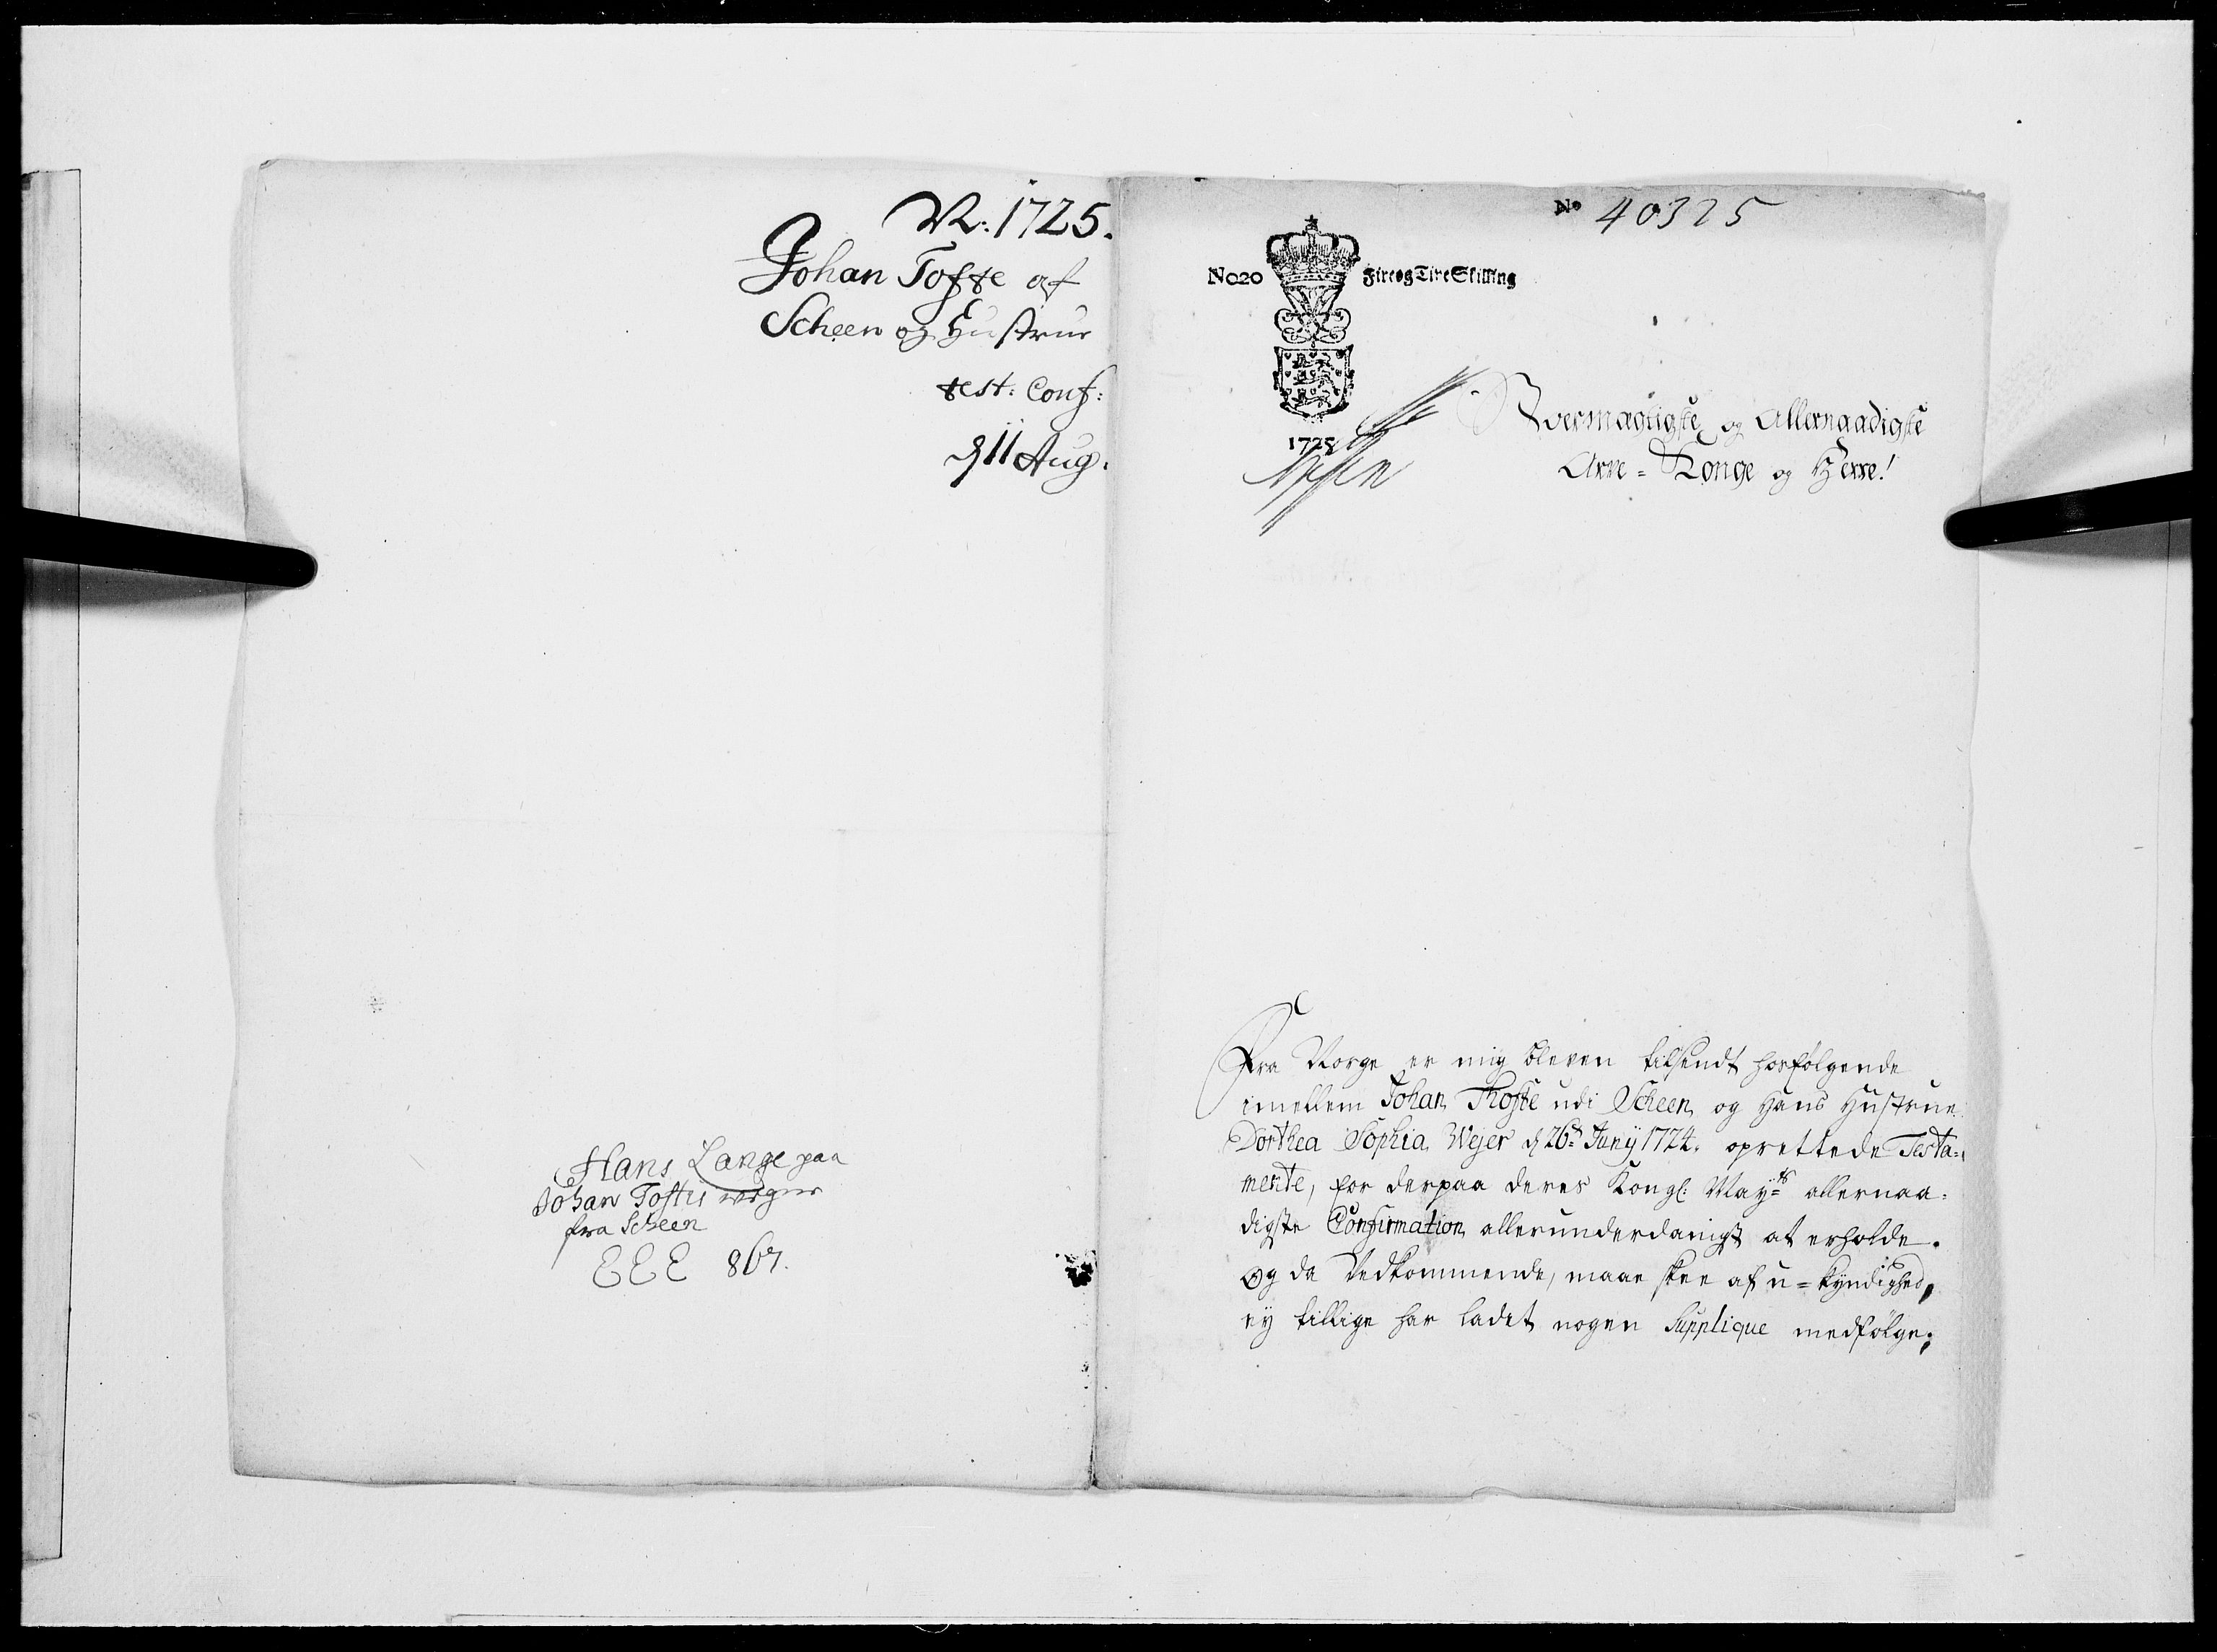 N: 1725.
Johan Tofte af
Scheen og Hustrue
test: Conf:
d 11 Aug:
Hans Lange paa
Johan Toftis vegne
fra Scheen
EEE 867.
No 40325
No20 Fire og Tive Skilling
1725
Stormægtigste og Allernaadigste
Arve-Konge og Herre!
Fra Norge er mig bleven tilsendt hosfølgende
imellem Johan Thofte udi Scheen og Hans Hustrue
Dorthea Sophia Wejer d 26de Junij 1724. oprettede Testa-
mente, for derpaa deres Kongl: Mayts allernaa-
digste Confirmation allerunderdanigst at erholde.
Og da Vedkommende, maae skee af u-kyndighed,
ej tillige har ladet nogen Supplique medfølge;